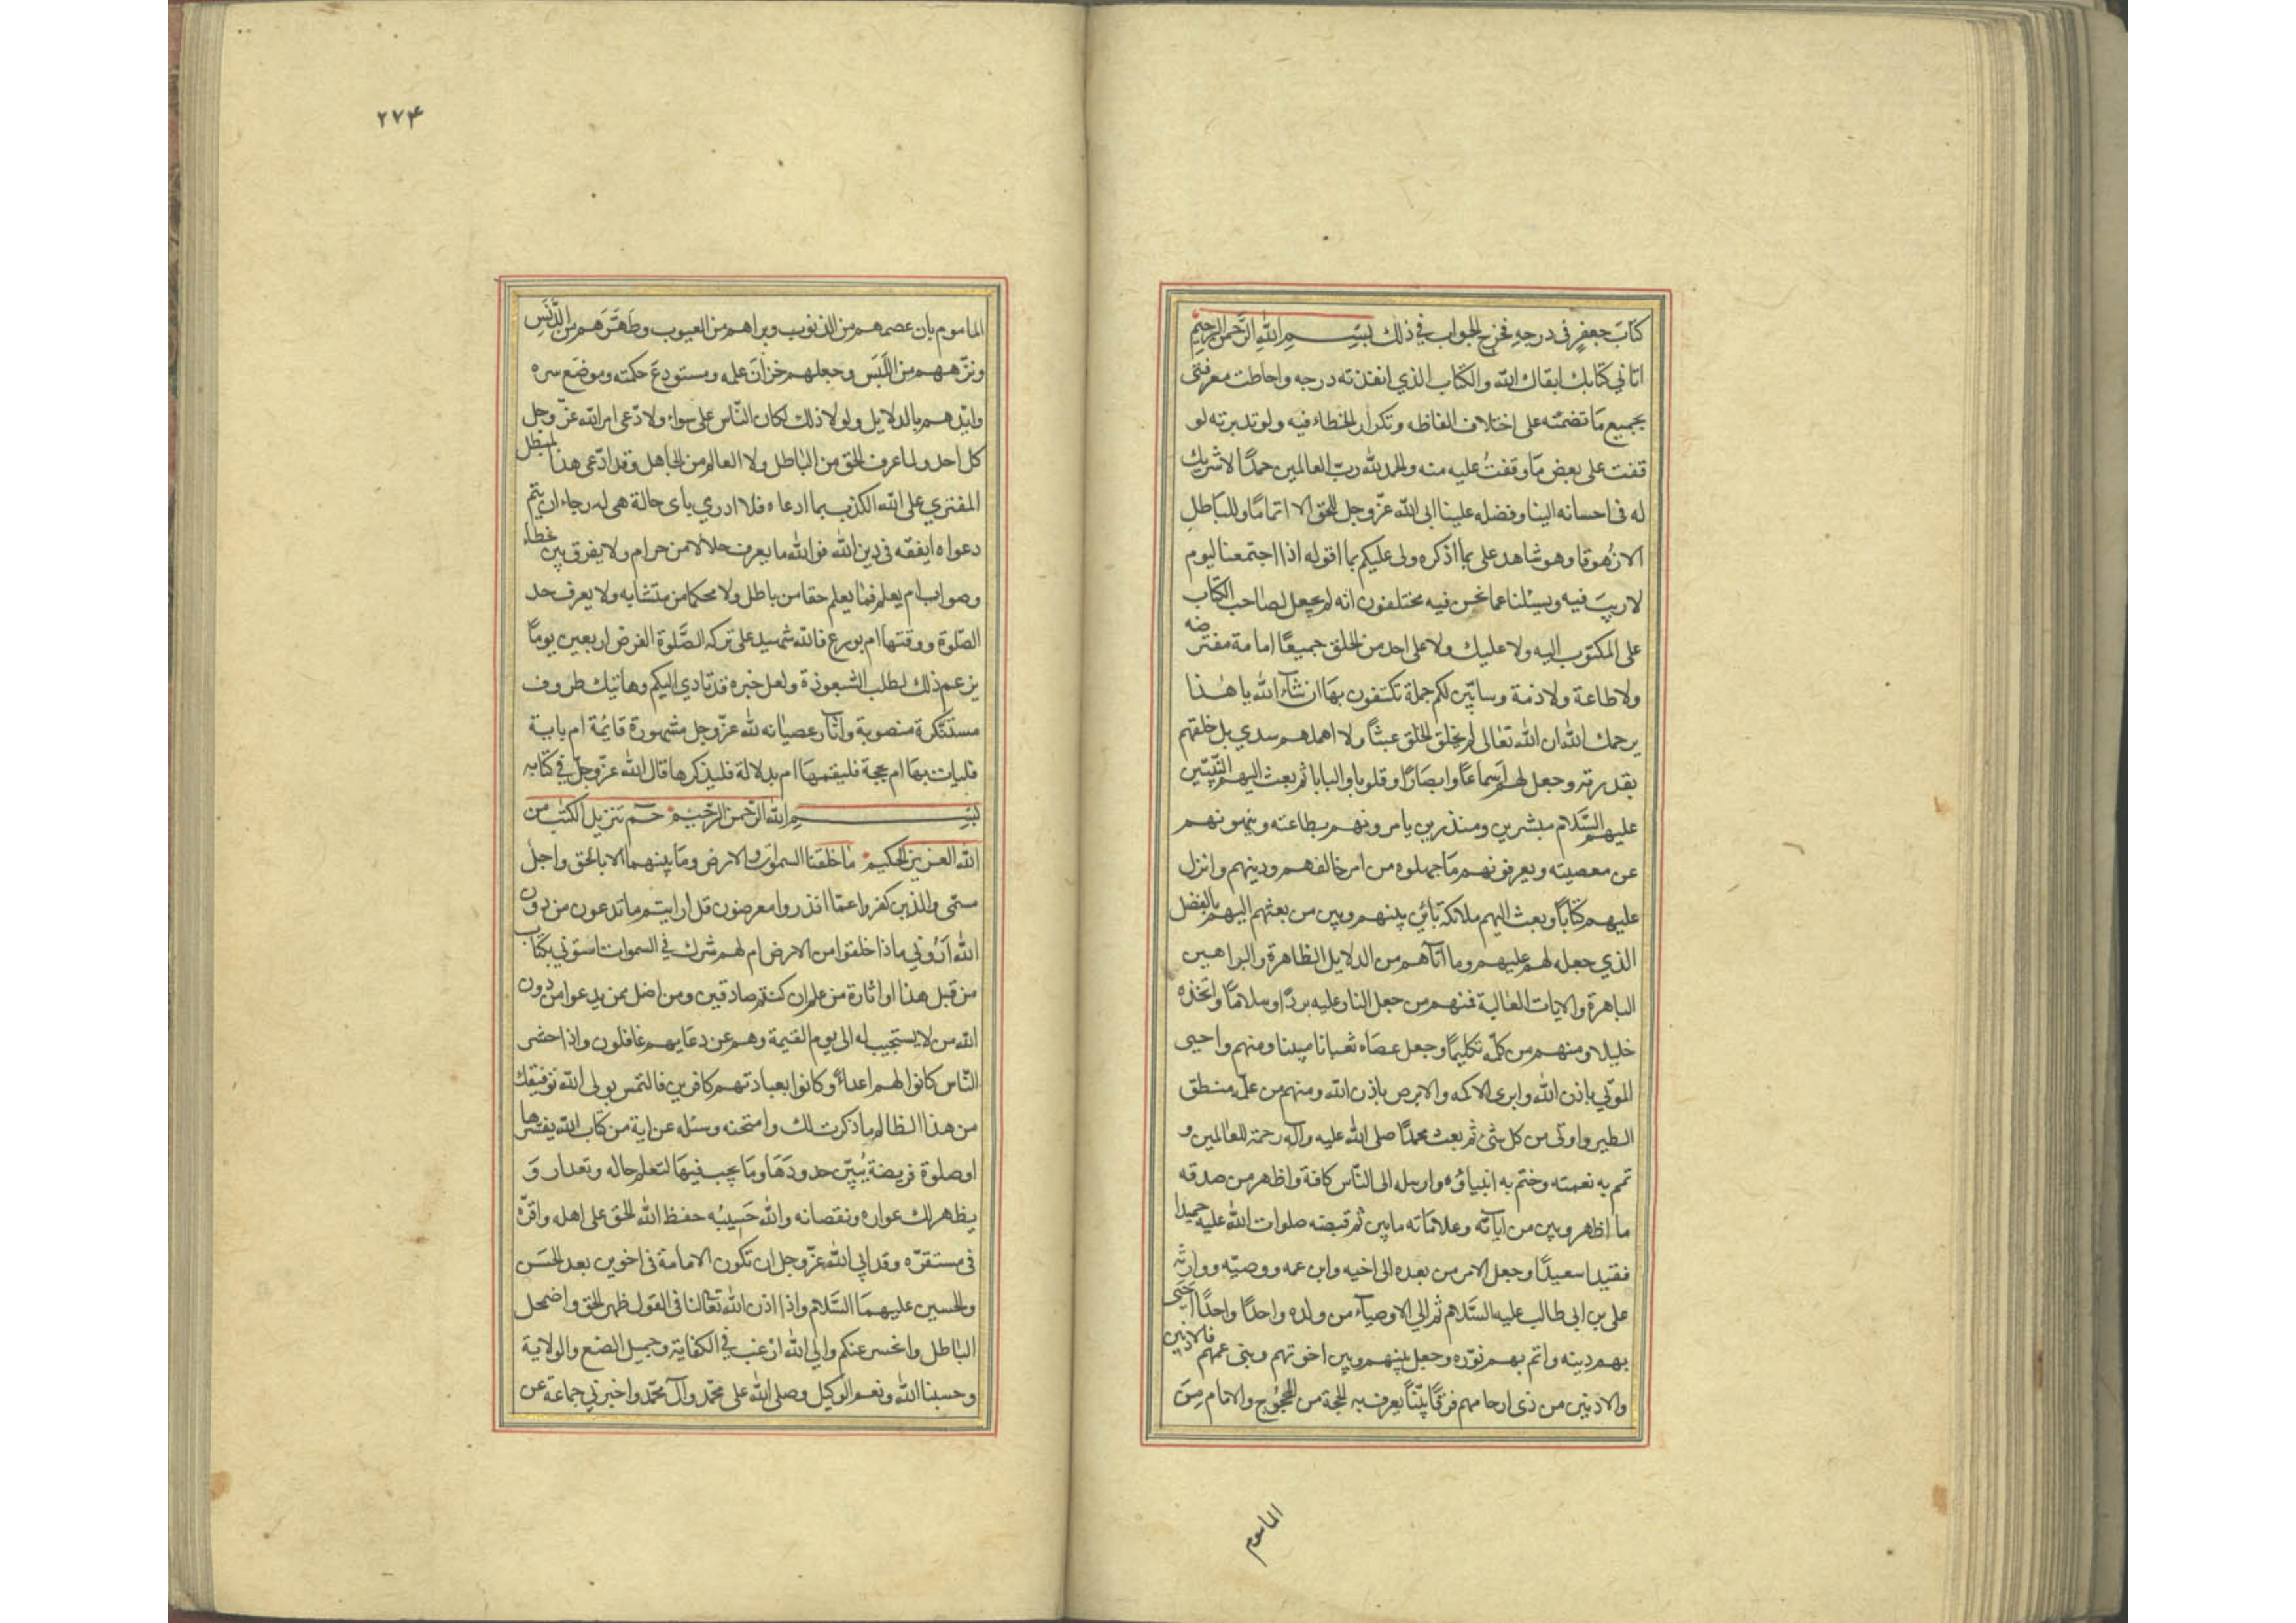 كتاب جعفر فى درجه فخرج الجواب في ذلك بسم الله الرحمن الرحيم
اتاني كتابك ابقاك الله والكتاب الذي انفذته درجه واحاطت معرفتى
بجميع ما تضمنه على اختلاف الفاظه وتكرار الخطاء فيه ولو تدبرته لو
قفت على بعض ما وقفت عليه منه والحمد لله رب العالمين حمدًا لا شريك
له فى احسانه الينا وفضله علينا ابى الله عزّ وجل للحق الا اتمامًا وللباطل
الا زهوقا وهو شاهد على بما اذكره ولى عليكم بما اقوله اذا اجتمعنا ليوم
لا ريب فيه ويسئلنا عما نحن فيه مختلفون انه لم يجعل لصاحب الكتاب
على المكتوب اليه ولا عليك ولا على احد من الخلق جميعًا امامة مفترضه
ولا طاعة ولا ذمة وسابيّن لكم جملة تكتفون بها ان شاء الله يا هذا
يرحمك الله ان الله تعالى لم يخلق الخلق عبثًا ولا اهملهم سدي بل خلقهم
بقدرته وجعل لهم اسماعًا وابصارًا وقلوبا والبابا ثم بعث اليهم النّبيّين
عليهم السّلام مبشرين ومنذرين يامرونهم بطاعته وينهونهم
عن معصيته ويعرفونهم ما جهلوه من امر خالقهم ودينهم وانزل
عليهم كتابًا وبعث اليهم ملائكة يأتين بينهم وبين من بعثهم اليهم بالفضل
الذي جعله لهم عليهم وما آتاهم من الدلايل الظاهرة والبراهين
الباهرة والايات الغالبة فمنهم من جعل النار عليه بردًا وسلامًا واتخذه
خليلا ومنهم من كلّمه تكليمًا وجعل عصاه ثعبانا مبينا ومنهم واحيى
الموتي باذن الله وابرى الاكمه والابرص باذن الله ومنهم من علّمه منطق
الطير واوتى من كل شئ ثم بعث محمدًا صلى الله عليه وآله رحمة للعالمين و
تمم به نعمته وختم به انبياؤه وارسله الى النّاس كافة واظهر من صدقه
ما اظهر وبين من اياته وعلاماته ما بين ثم قبضه صلوات الله عليه حميدا
فقيدا سعيدًا وجعل الامر من بعده الى اخيه وابن عمه ووصيّه ووارثه
على بن ابى طالب عليه السّلام ثم الي الاوصيآء من ولده واحدًا واحدًا احيى
بهم دينه واتم بهم نوره وجعل بينهم وبين اخوتهم وبنى عمهم فالادنين
والادنين من ذى ارحامهم فرقًا بيّنًا يعرف به الحجة من المحجوج والامام من
الماموم
٢٧۴
الماموم بان عصمهم من الذنوب وبراهم من العيوب وطهّرهم من الدّنس
ونزّههم من اللّبس وجعلهم خزّان علمه ومستودع حكمته وموضع سره
وايّدهم بالدلايل ولولا ذلك لكان النّاس على سواء ولادّعى امر الله عزّ وجل
كل احد ولما عرف الحق من الباطل ولا العالم من الجاهل وقد ادّعى هذا المبطل
المفتري على الله الكذب بما ادعاه فلا ادري باى حالة هى له رجاء ان يتم
دعواه ايفقه فى دين الله فوالله ما يعرف حلالا من حرام ولا يفرق بين خطاء
وصواب ام يعلم فما يعلم حقا من باطل ولا محكما من متشابه ولا يعرف حد
الصّلوة ووقتها ام بورع فالله شهيد على تركه الصّلوة الفرض اربعين يومًا
يزعم ذلك لطلب الشعوذة ولعل خبره قد تادي اليكم وهاتيك ظروف
مسكره منصوبة وآثار عصيانه لله عزّ وجل مشهورة قائمة ام باية
فليات بها ام بحجة فليقمها ام بدلالة فليذكرها قال الله عزّ وجلّ في كتابه
بسم الله الرّحمن الرّحيم حم تنزيل الكتب من
الله العزيز الحكيم ما خلقنا السموات والارض وما بينهما الا بالحق واجل
مسمّى والذين كفروا عمّا انذروا معرضون قل ارايتم ما تدعون من دون
الله اروني ماذا خلقوا من الارض ام لهم شرك في السموات استوني بكتاب
من قبل هذا او اثارة من علم ان كنتم صادقين ومن اضل ممن يدعوا من دون
الله من لا يستجيب له الى يوم القيمة وهم عن دعايهم غافلون واذا حشر
النّاس كانوا لهم اعداءً وكانوا بعبادتهم كافرين فالتمس تولى الله توفيقك
من هذا الظالم ما ذكرت لك وامتحنه وسئله عن اية من كتاب الله يفسّرها
او صلوة فريضة يبيّن حدودها وما يجب فيها لتعلم حاله ومقداره و
يظهر لك عواره ونقصانه والله حسيبه حفظ الله الحق على اهله واقرّه
فى مستقرّه وقد ابي الله عزّ وجل ان تكون الامامة فى اخوين بعد الحسن
والحسين عليهما السّلام واذا اذن الله تعالى لنا فى القول ظهر الحق واضمحل
الباطل وانحسر عنكم والي الله ارغب في الكفاية وجميل الصنع والولاية
وحسبنا الله ونعم الوكيل وصلى الله على محمّد وآل محمّد واخبرني جماعة عن